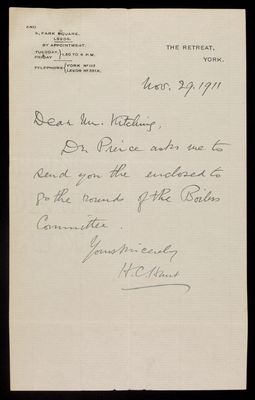 AND
5, PARK SQUARE,
LEEDS.
BY APPOINTMENT.
TUESDAY
FRIDAY
TELEPHONE
YORK
LEEDS
THE RETREAT,
YORK.
Nov. 29. 1911
Dear Mr. Kitching,
Dr Pierce asks me to
send you the enclosed to
go the rounds of the Boilers
Committee.
Yours sincerely
H. C. Hunt